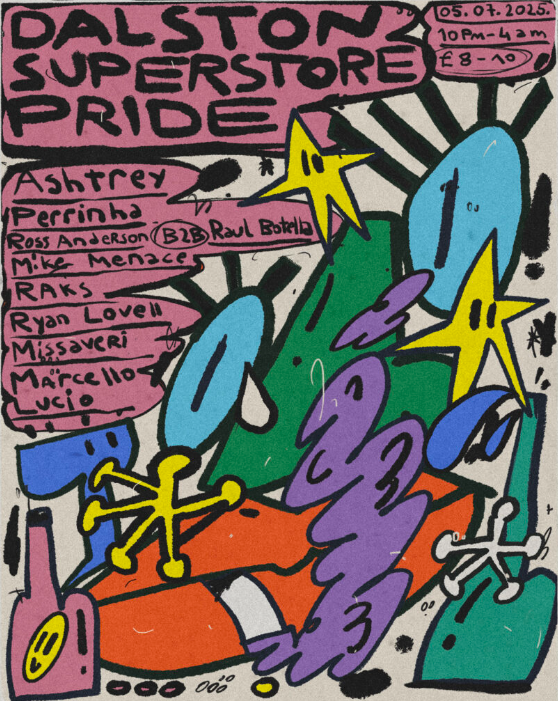 DALSTON
SUPERSTORE
PRIDE
05.07.2025.
10Pm-4am
£8-10
Ashtrey
Perrinha
Ross Anderson B2B Raul Botella
Mike Menace
RAKS
Ryan Lovell
Missaveri
Marcello
Lucio